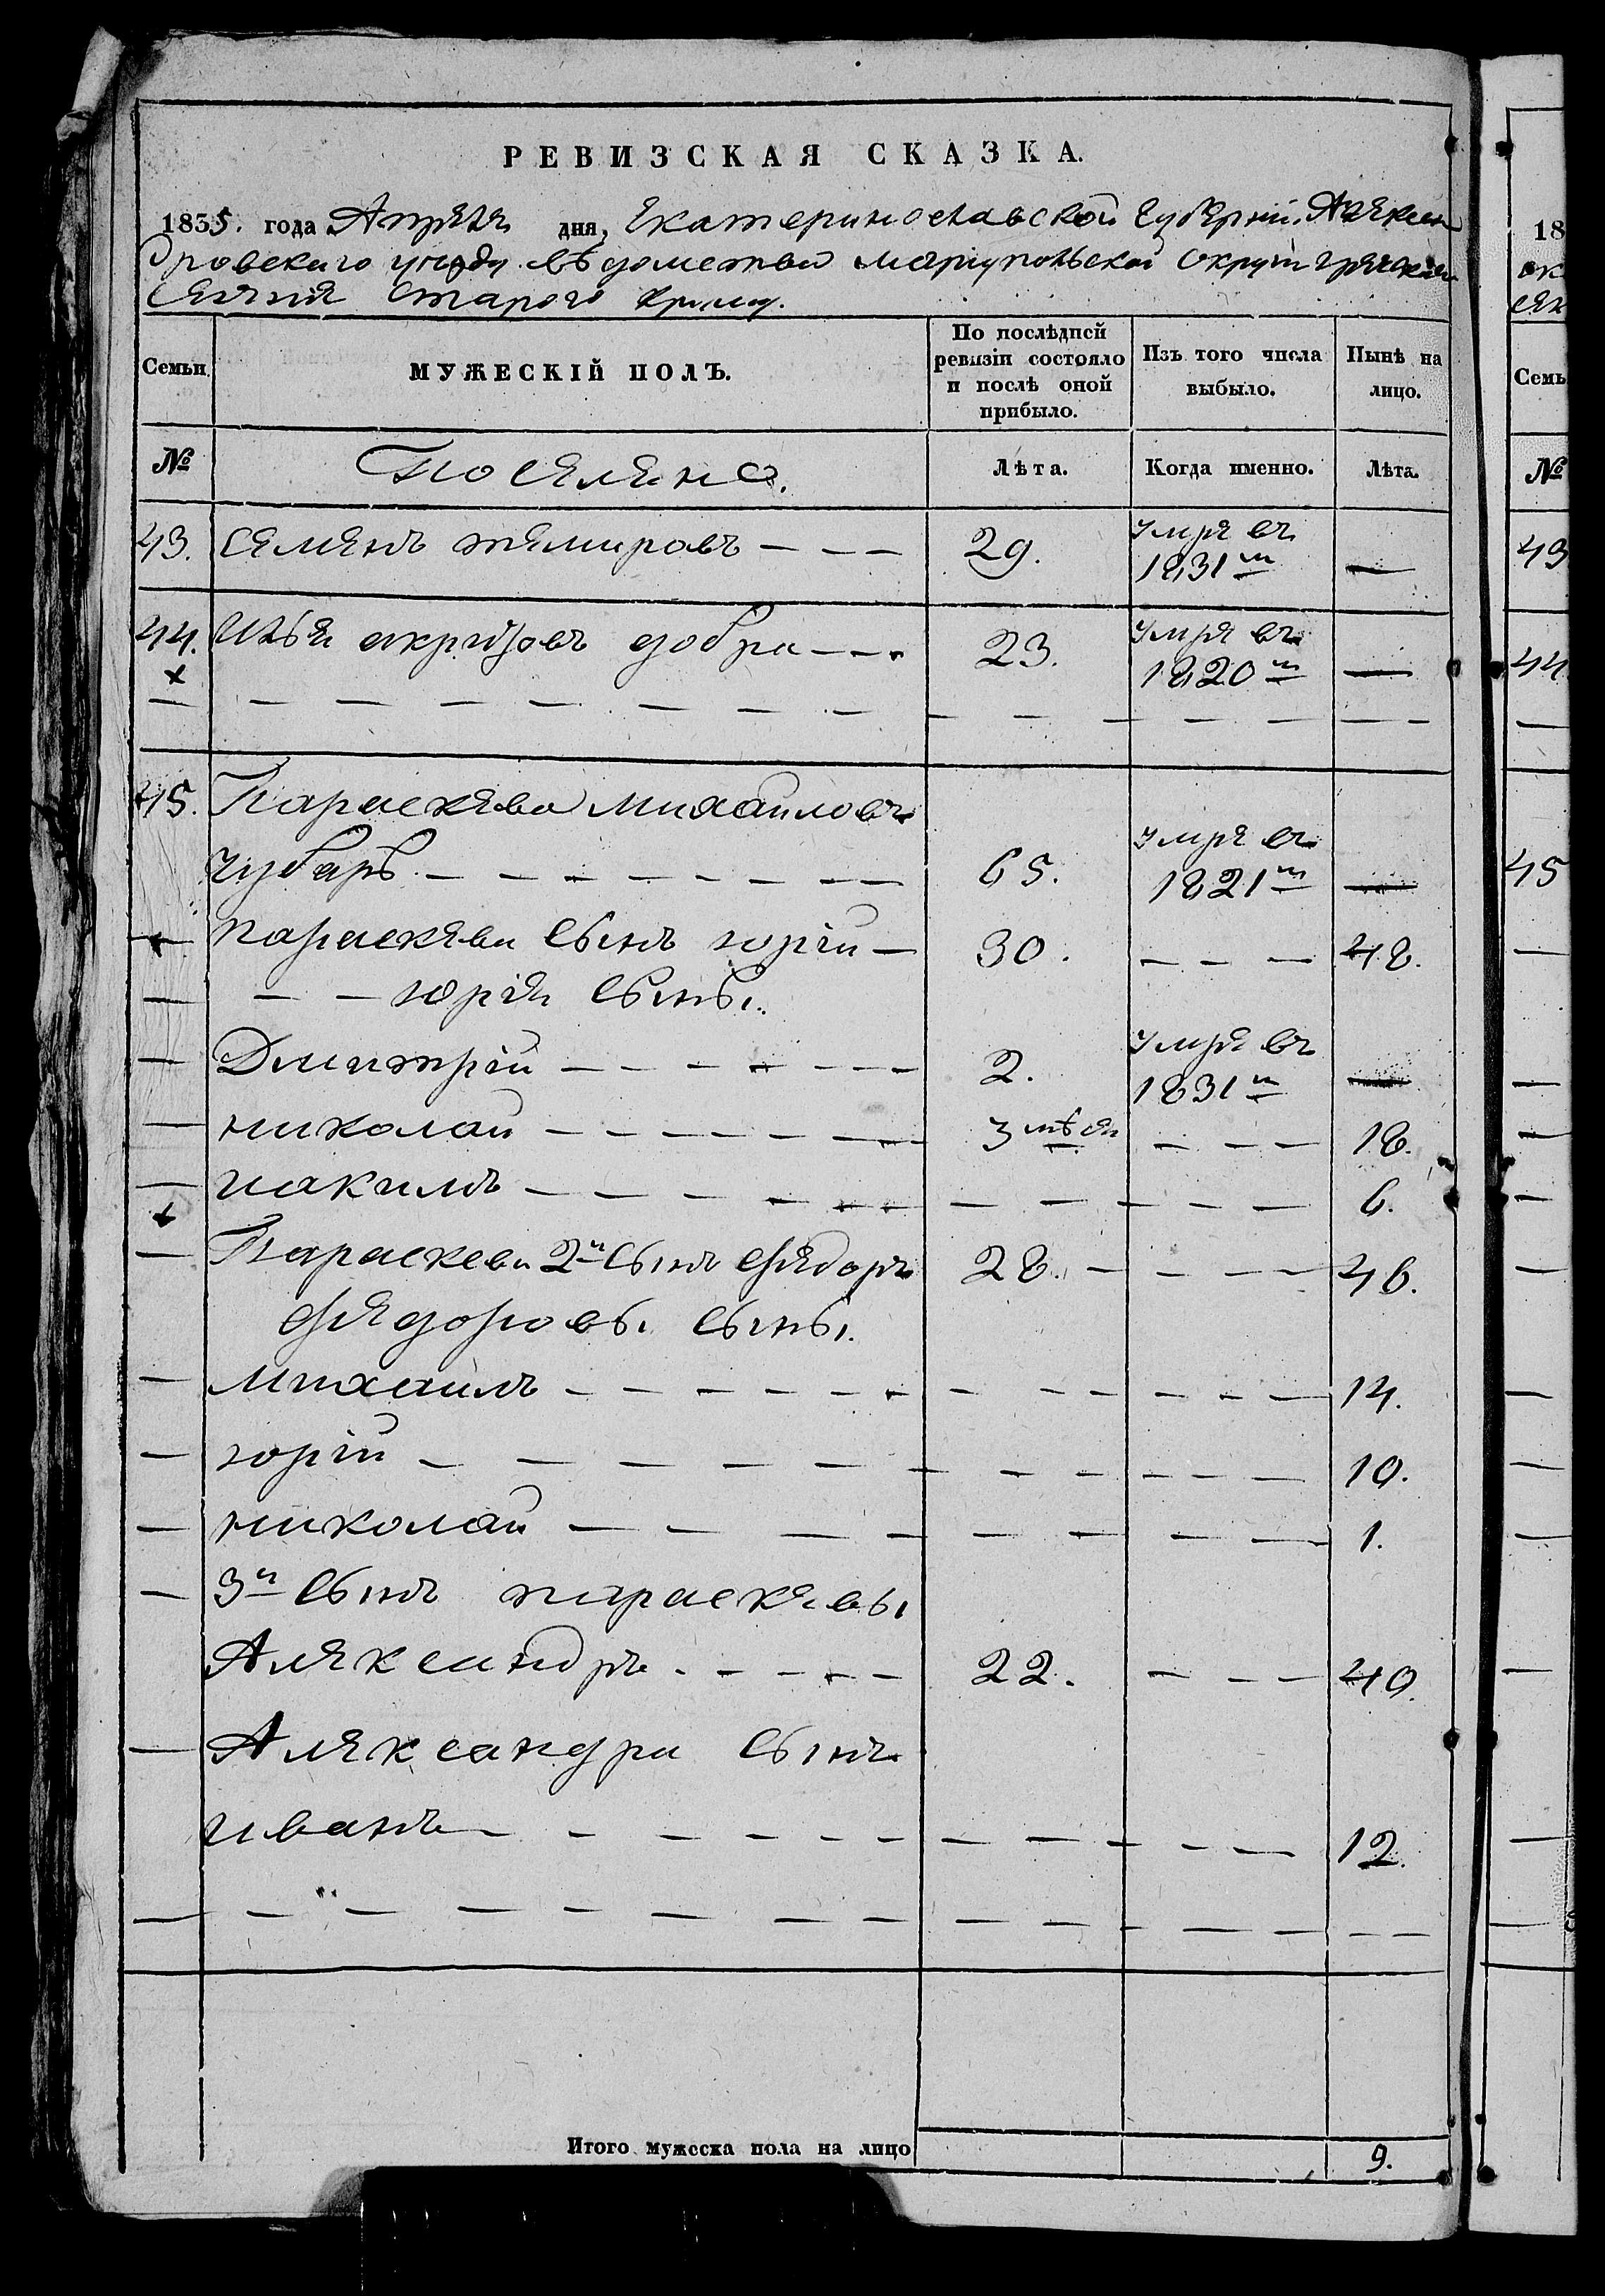 РЕВИЗСКАЯ СКАЗКА.
1835. года Апреля дня, Екатеринославской Губернии. Алексан
дровскаго уезда вѣдомства Мариупольскаго Округа греческаго
селения Старого Крыма.
Семьи МУЖЕСКІЙ ПОЛЪ. По послѣдней ревизіи состояло и послѣ оной прибыло. Изъ того числа выбыло. Нынѣ на лицо.
№ Поселяне. Лѣта. Когда именно. Лѣта.
43. Семенъ темировъ - - - 29. умре въ 1831м —
44. Илья добра - - - 23. умре въ 1820м —
45. Параскева Михаиловъ
чубаръ - - - 65. умре въ 1821м —
параскевы Сынъ юрій — 30. - - - 48.
- - юрія Сыны.
Дмитрій - - - 2. умре въ 1831м —
николай - - - 3 мѣся - - - 18.
иакимъ - - - 6.
Параскевы 2й Сынъ Федоръ 28. - - - 46.
Федоровы Сыны.
михаилъ - - - 14.
юрій - - - 10.
николай - - - 1.
3й Сынъ параскевы
Александръ - - - 22. - - - 40.
Александра Сынъ
иванъ - - - 12.
Итого мужеска пола на лицо 9.
18
Семь
№
43
44
45